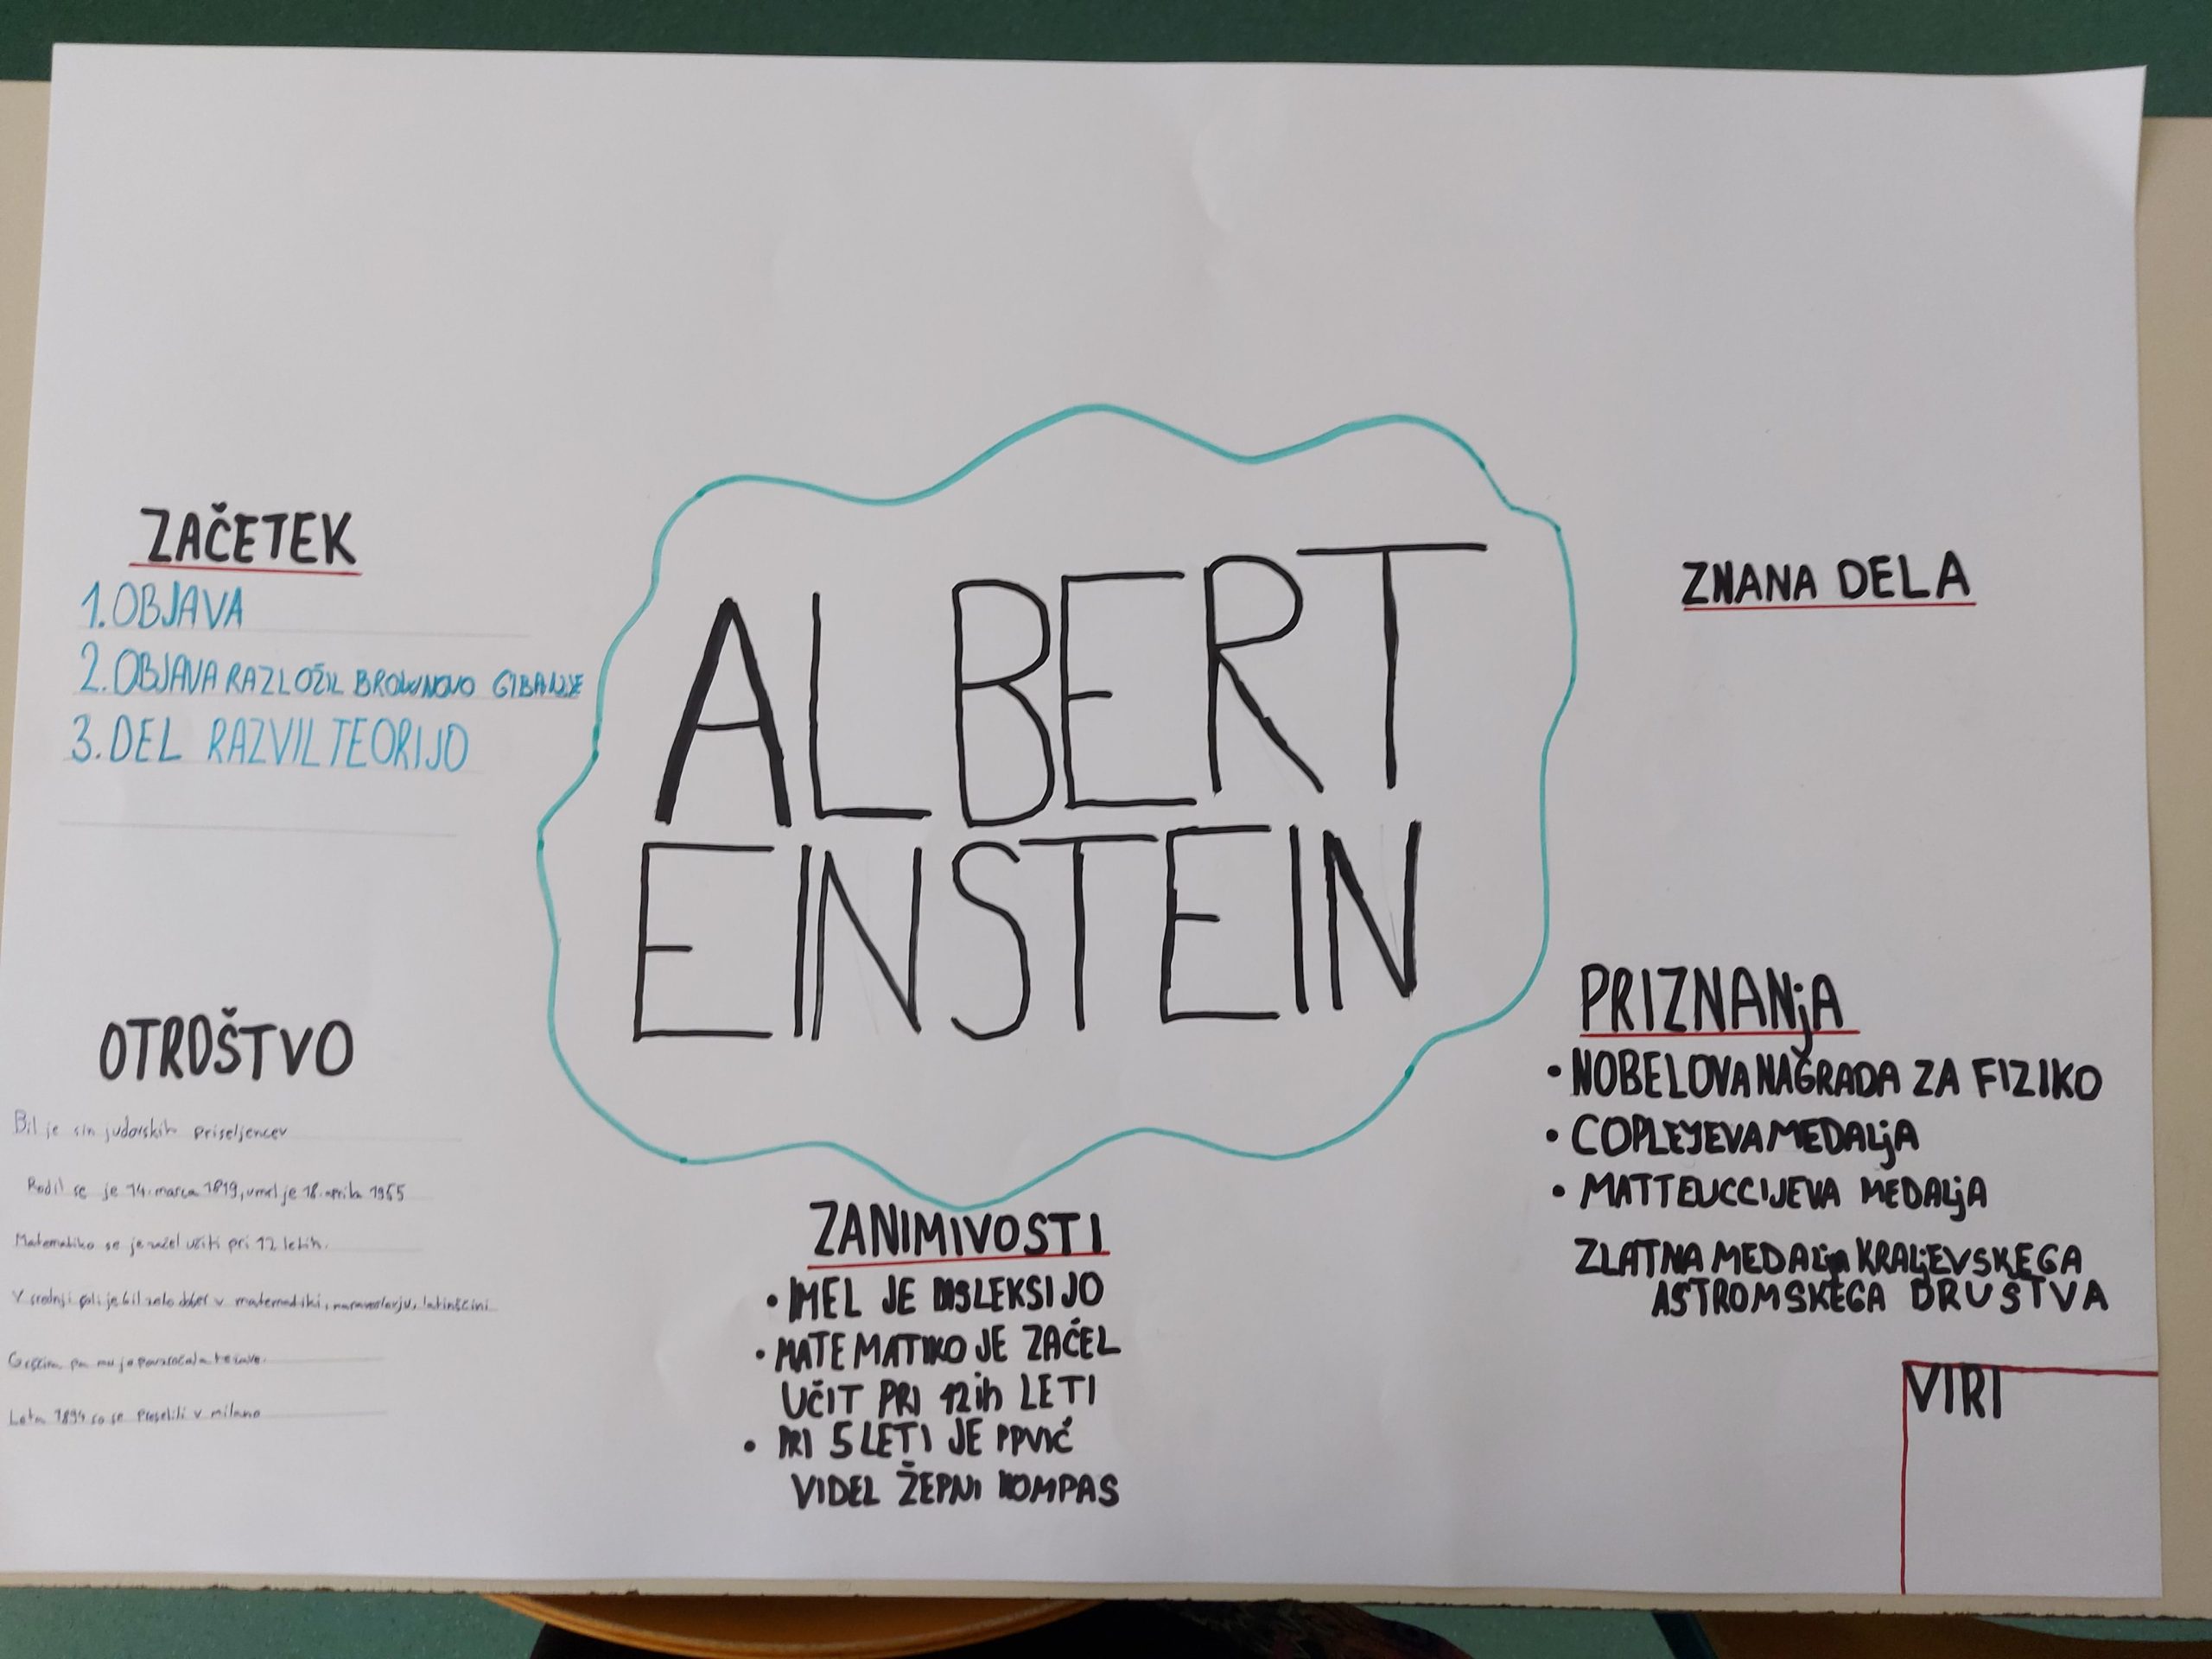 ALBERT
EINSTEIN
ZAČETEK
1. OBJAVA
2. OBJAVA RAZLOŽIL BROWNOVO GIBANJE
3. DEL RAZVIL TEORIJO
OTROŠTVO
Bil je sin judovskih priseljencev
Rodil se je 14. marca 1879, umrl je 18. aprila 1955
Matematiko se je začel učiti pri 12 letih.
V srednji šoli je bil zelo dober v matematiki, naravoslovju, latinščini
Grščina pa mu je povzročala težave.
Leta 1894 so se preselili v milano
ZANIMIVOSTI
• IMEL JE DISLEKSIJO
• MATEMATIKO JE ZAČEL
UČIT PRI 12ih LETI
• PRI 5 LETI JE PPVIČ
VIDEL ŽEPNI KOMPAS
ZNANA DELA
PRIZNANjA
• NOBELOVA NAGRADA ZA FIZIKO
• COPLEYEVA MEDALjA
• MATTEUCCIJEVA MEDALjA
ZLATNA MEDALja KRALjEVSKEGA
ASTROMSKEGA DRUŠTVA
VIRI